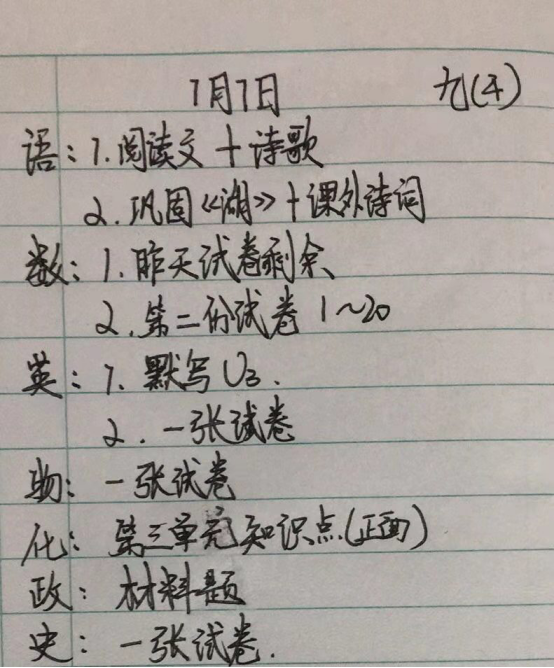 1月7日 九(4)
语：1.阅读文+诗歌
2.巩固《湖》+课外诗词
数：1.昨天试卷剩余
2.第二份试卷1~20
英：1.默写U3.
2.一张试卷
物：一张试卷
化：第三单元知识点(正面)
政：材料题
史：一张试卷.